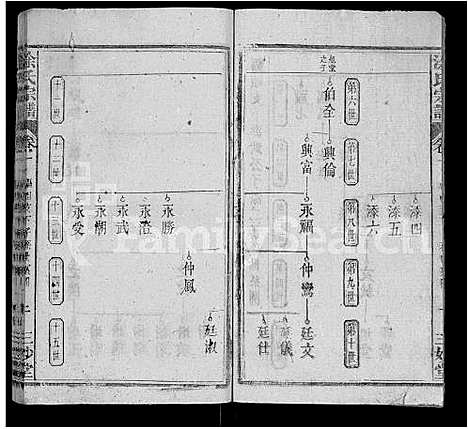 涂氏宗譜
卷
三妙堂
第六世
第七世
第八世
第九世
第十世
之子
伯全
興倫
興富
添四
添五
添六
永福
仲鸞
廷文
廷儀
廷仕
十一世
十二世
十三世
十四世
十五世
永勝
永澄
永武
永潮
永受
仲鳳
廷淑
涂氏宗譜
卷
三妙堂
FamilySearch